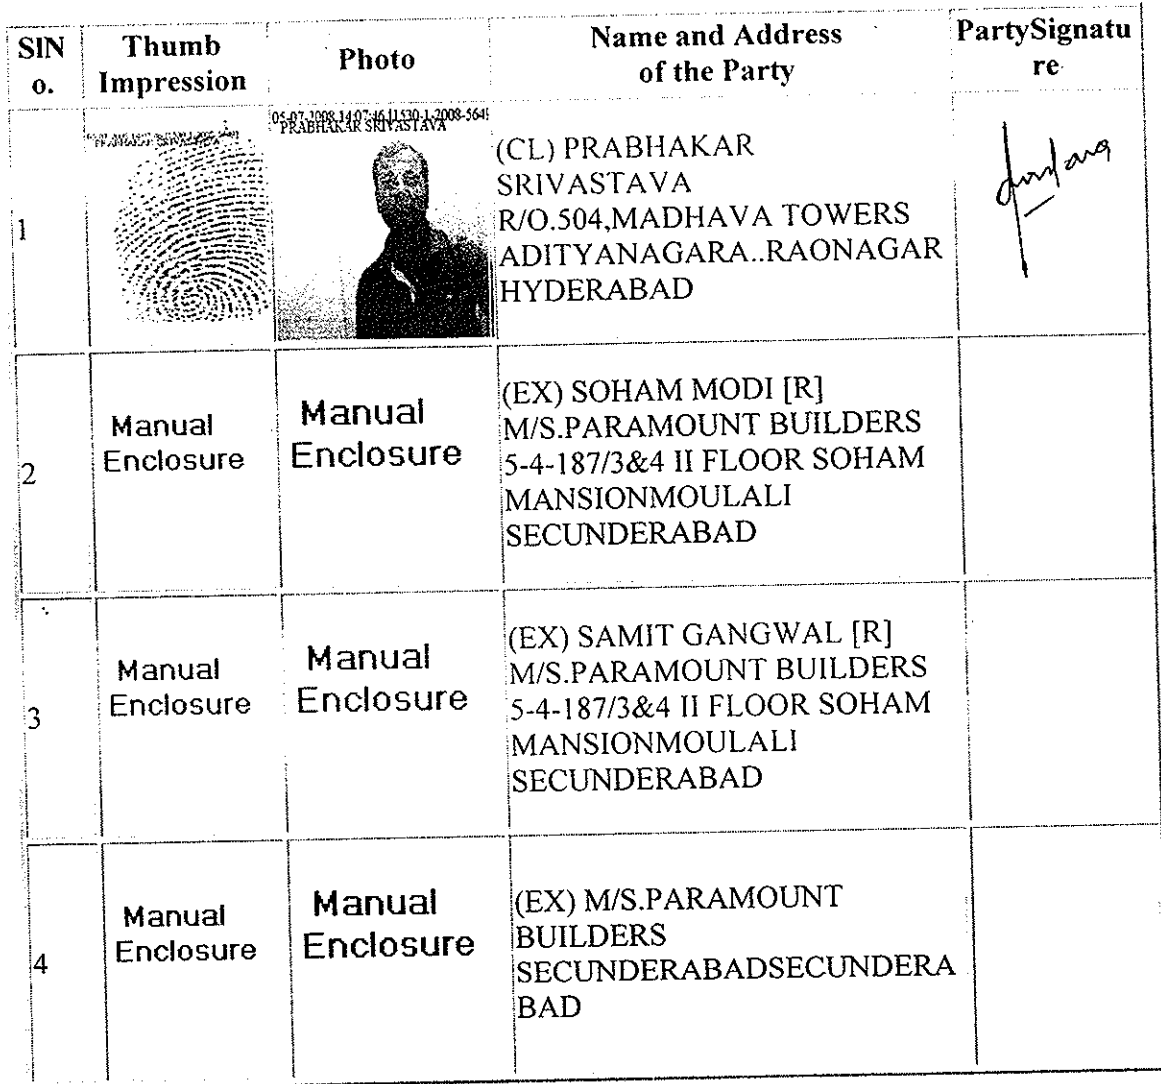 SlN
o.
Thumb
Impression
Photo
Name and Address
of the Party
PartySignatu
re
1
05-07-2008,14:07:46,11530-1-2008-5649
PRABHAKAR SRIVASTAVA
(CL) PRABHAKAR
SRIVASTAVA
R/O.504,MADHAVA TOWERS
ADITYANAGARA..RAONAGAR
HYDERABAD
2
Manual
Enclosure
Manual
Enclosure
(EX) SOHAM MODI [R]
M/S.PARAMOUNT BUILDERS
5-4-187/3&4 II FLOOR SOHAM
MANSIONMOULALI
SECUNDERABAD
3
Manual
Enclosure
Manual
Enclosure
(EX) SAMIT GANGWAL [R]
M/S.PARAMOUNT BUILDERS
5-4-187/3&4 II FLOOR SOHAM
MANSIONMOULALI
SECUNDERABAD
4
Manual
Enclosure
Manual
Enclosure
(EX) M/S.PARAMOUNT
BUILDERS
SECUNDERABADSECUNDERA
BAD